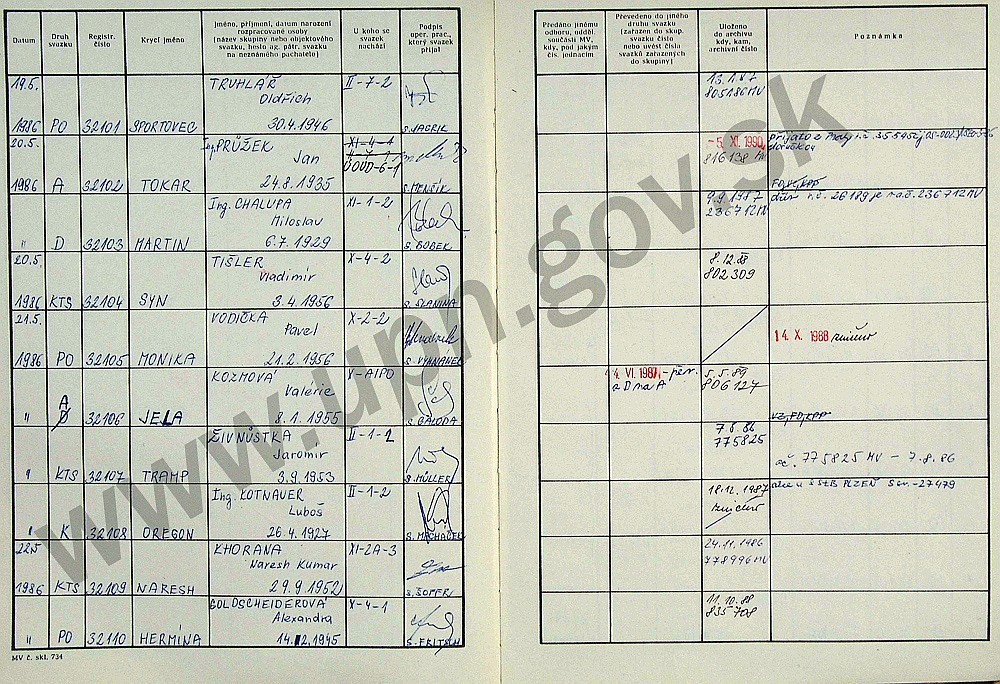 Datum
Druh svazku
Registr. číslo
Krycí jméno
Jméno, příjmení, datum narození
rozpracované osoby
(název skupiny nebo objektového
svazku, heslo ag. pátr. svazku
na neznámého pachatele)
U koho se
svazek
nachází
Podpis
oper. prac.,
který svazek
přijal
Předáno jinému
odboru, odděl.
součásti MV,
kdy, pod jakým
čís. jednacím
Převedeno do jiného
druhu svazku
(zařazen do skup.
svazku číslo
nebo uvést čísla
svazků zařazených
do skupiny)
Uloženo
do archivu
kdy, kam,
archivní číslo
Poznámka
19.5. TRUHLÁŘ II-7-2 13.1.87
Oldřich 805186MV
1986 PO 32101 SPORTOVEC 30.4.1946
20.5. Ing. PRŮŽEK XI-4-1 -5. XI. 1990
Jan 816138
1986 A 32102 TOKAR 24.8.1935 S. MENŠÍK
Ing. CHALUPA XI-1-2 9.9.1987
Miloslav 236712MV
" D 32103 MARTIN 6.7.1929 S. BOBEK
20.5. TIŠLER X-4-2 8.12.88
Vladimír 802309
1986 KTS 32104 SYN 3.4.1956 S. SLANINA
21.5. VODIČKA X-2-2
Pavel 14. X. 1988 zničeno
1986 PO 32105 MONIKA 21.2.1956
KOZMOVÁ X-AIPO 4. VI. 1987 5.5.89
A Valerie a D na A 806127
" D 32106 JELA 8.1.1955 S. GALODA
ŽIVNŮSTKA II-1-2 7.8.86
Jaromír 775825
" KTS 32107 TRAMP 3.9.1953 S. MÜLLER ač. 775825 MV - 7.8.86
Ing. KOTNAUER II-1-2 18.12.1987
Luboš zničeno
" K 32108 OREGON 26.4.1927 S. MACHÁČEK
22.5. KHORANA XI-2A-3 24.11.1986
Naresh Kumar 778996MV
1986 KTS 32109 NARESH 29.9.1952
GOLDSCHEIDEROVÁ X-4-1 11.10.88
Alexandra 835708
" PO 32110 HERMÍNA 14.12.1945 S. FRITSCH
MV č. skl. 734
www.upn.gov.sk